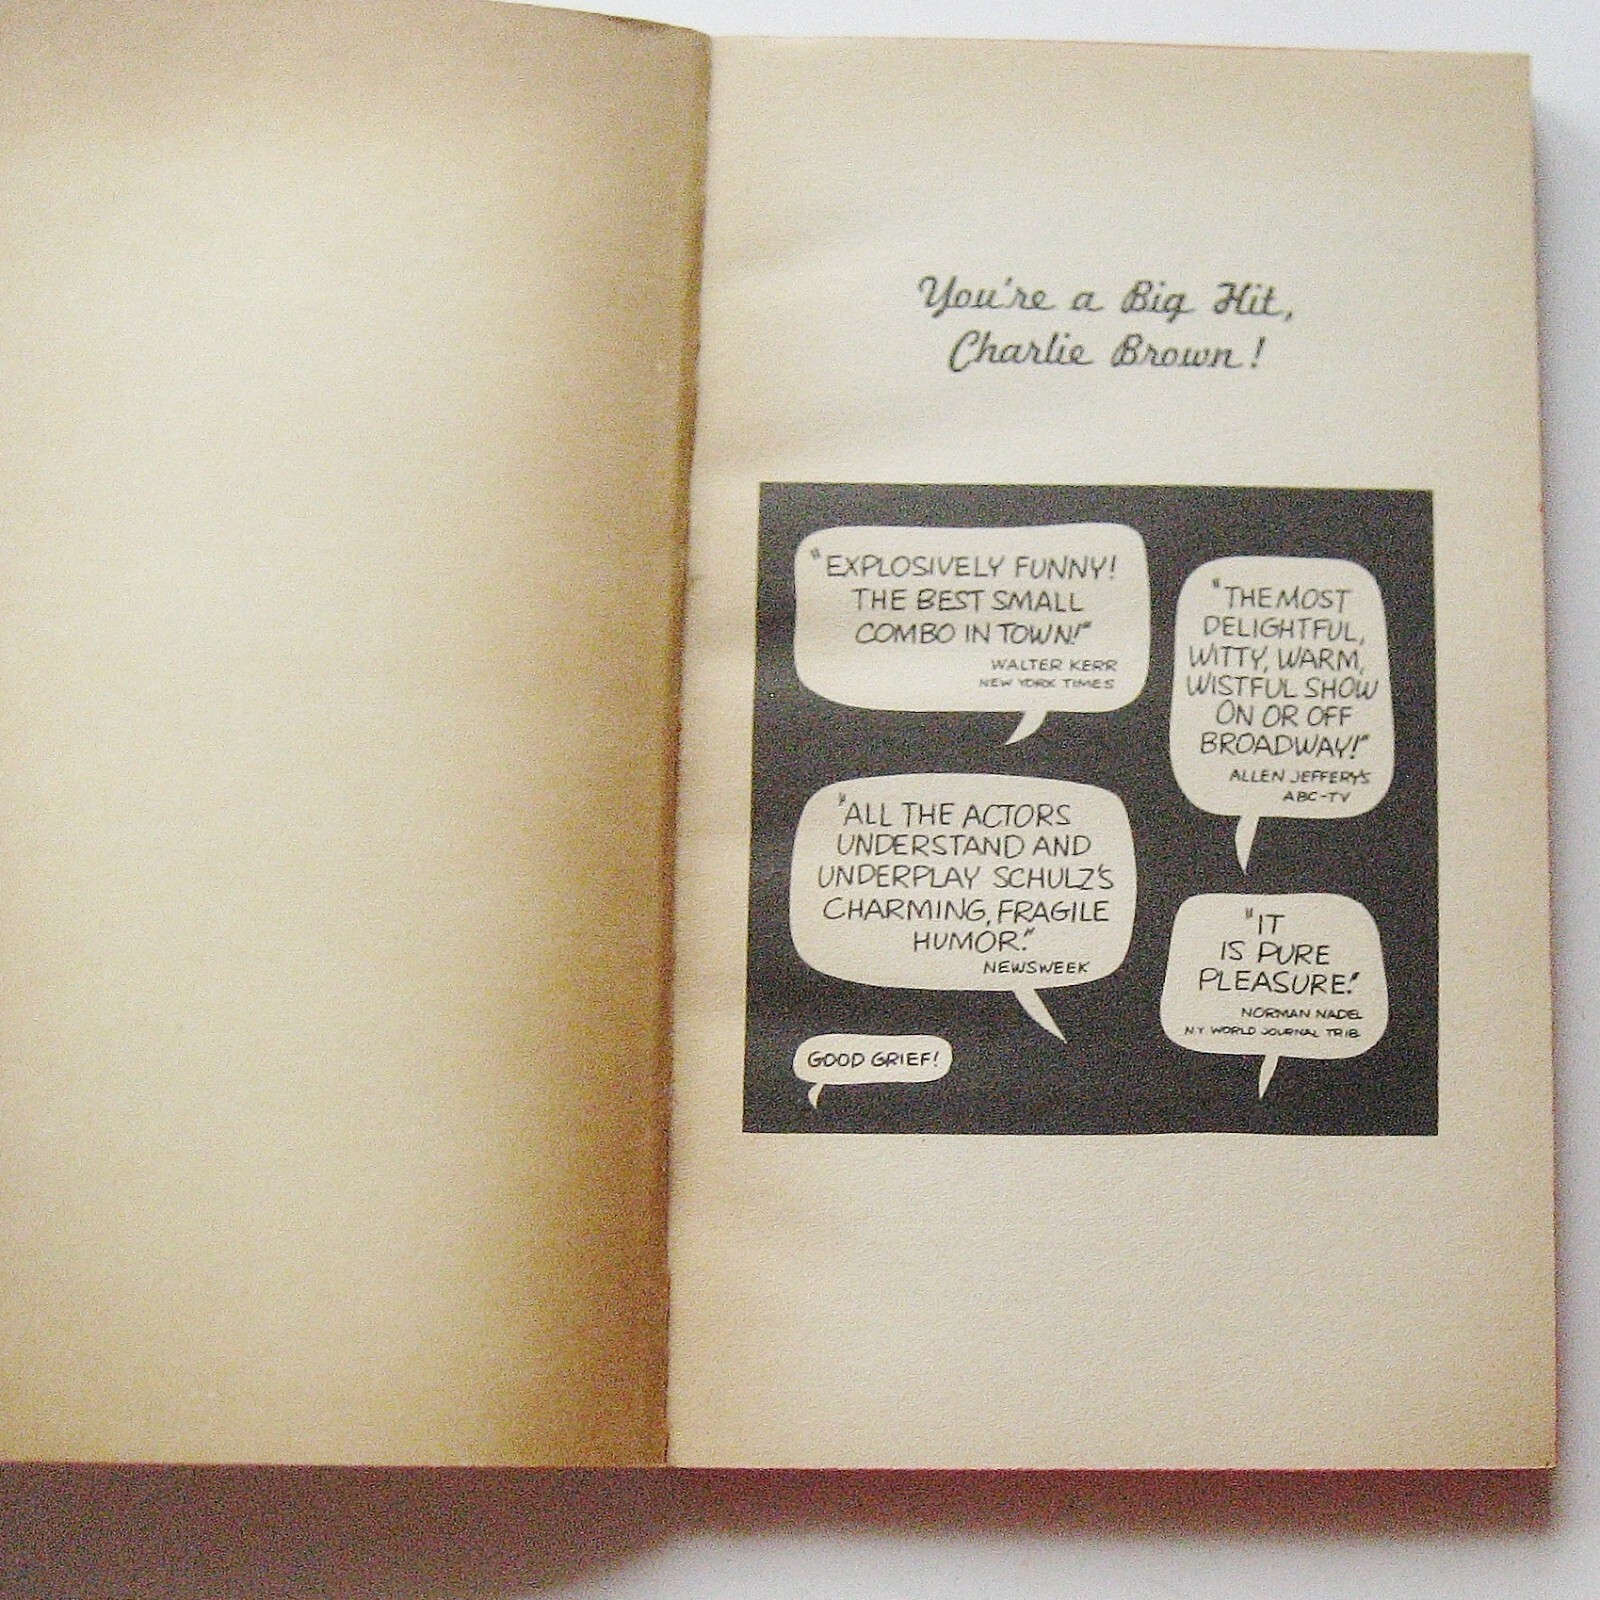 You're a Big Hit,
Charlie Brown!
"EXPLOSIVELY FUNNY!
THE BEST SMALL
COMBO IN TOWN!"
WALTER KERR
NEW YORK TIMES
"THE MOST
DELIGHTFUL,
WITTY, WARM,
WISTFUL SHOW
ON OR OFF
BROADWAY!"
ALLEN JEFFERYS
ABC-TV
"ALL THE ACTORS
UNDERSTAND AND
UNDERPLAY SCHULZ'S
CHARMING, FRAGILE
HUMOR."
NEWSWEEK
"IT
IS PURE
PLEASURE."
NORMAN NADEL
N.Y. WORLD JOURNAL TRIB.
GOOD GRIEF!